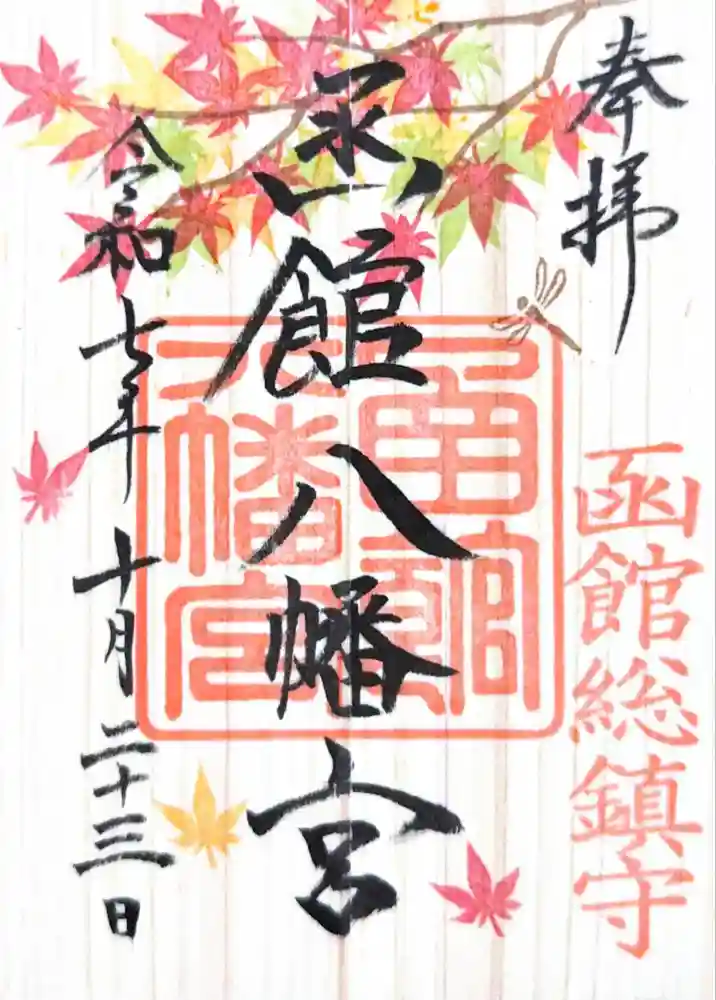 奉拝
函館総鎮守
函館八幡宮
函館八幡宮
令和七年十月二十三日